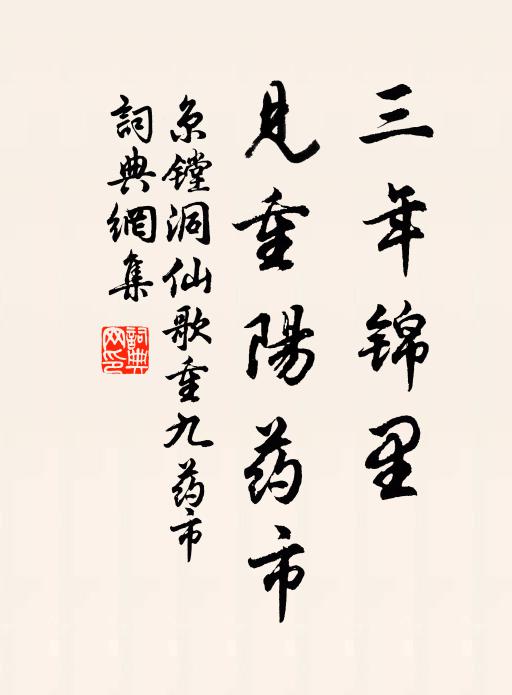 三年锦里
見重陽药市
京镗洞仙歌重九药市
詞典網集
詞典網印